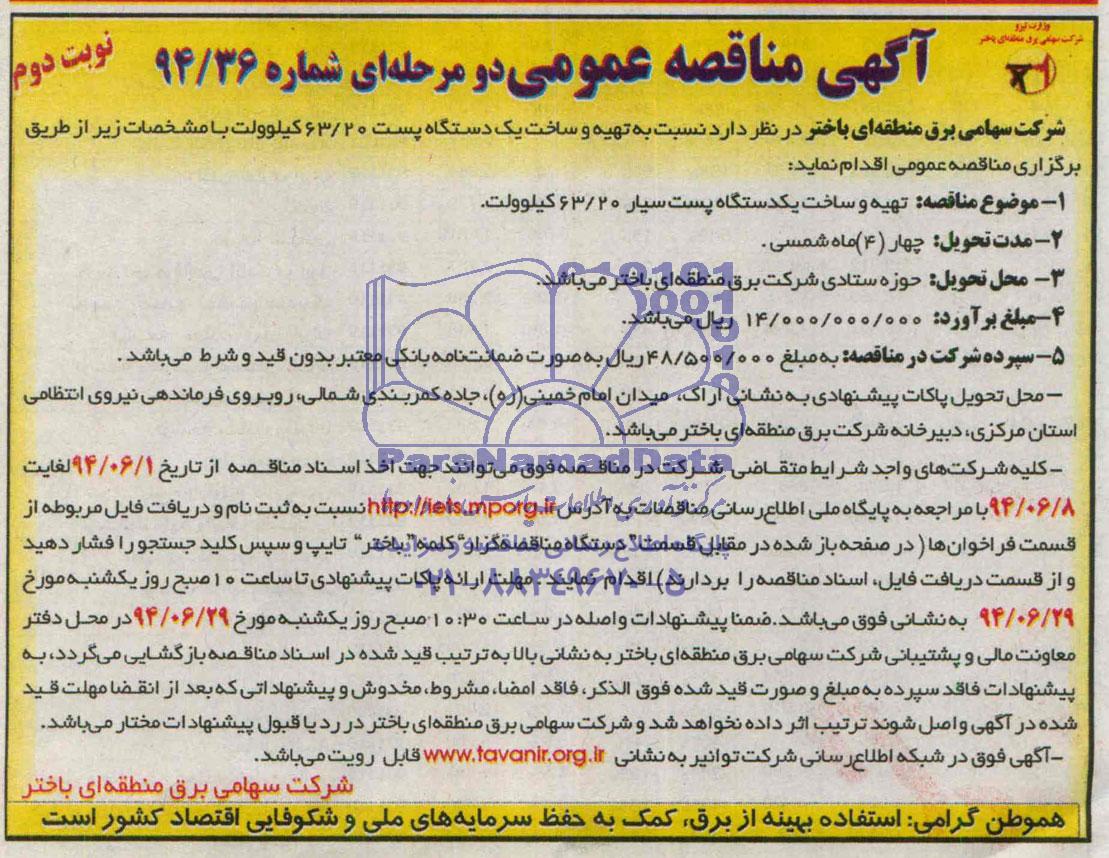 وزارت نیرو
شرکت سهامی برق منطقه‌ای باختر
آگهی مناقصه عمومی دو مرحله‌ای شماره ۹۴/۳۶
نوبت دوم
شرکت سهامی برق منطقه‌ای باختر در نظر دارد نسبت به تهیه و ساخت یک دستگاه پست ۶۳/۲۰ کیلوولت با مشخصات زیر از طریق
برگزاری مناقصه عمومی اقدام نماید:
۱- موضوع مناقصه: تهیه و ساخت یکدستگاه پست سیار ۶۳/۲۰ کیلوولت.
۲- مدت تحویل: چهار (۴) ماه شمسی.
۳- محل تحویل: حوزه ستادی شرکت برق منطقه‌ای باختر می‌باشد.
۴- مبلغ برآورد: ۱۴/۰۰۰/۰۰۰/۰۰۰ ریال می‌باشد.
۵- سپرده شرکت در مناقصه: به مبلغ ۴۸/۵۰۰/۰۰۰ ریال به صورت ضمانت‌نامه بانکی معتبر بدون قید و شرط می‌باشد.
- محل تحویل پاکات پیشنهادی به نشانی اراک، میدان امام خمینی(ره)، جاده کمربندی شمالی، روبروی فرماندهی نیروی انتظامی
استان مرکزی، دبیرخانه شرکت برق منطقه‌ای باختر می‌باشد.
- کلیه شرکت‌های واجد شرایط متقاضی شرکت در مناقصه فوق می‌توانند جهت اخذ اسناد مناقصه از تاریخ ۹۴/۰۶/۱ لغایت
۹۴/۰۶/۸ با مراجعه به پایگاه ملی اطلاع‌رسانی مناقصات به آدرس http://iets.mporg.ir نسبت به ثبت نام و دریافت فایل مربوطه از
قسمت فراخوان‌ها ( در صفحه باز شده در مقابل قسمت "دستگاه مناقصه‌گزار" کلمه "باختر" تایپ و سپس کلید جستجو را فشار دهید
و از قسمت دریافت فایل، اسناد مناقصه را بردارند) اقدام نمایند. مهلت ارائه پاکات پیشنهادی تا ساعت ۱۰ صبح روز یکشنبه مورخ
۹۴/۰۶/۲۹ به نشانی فوق می‌باشد. ضمنا پیشنهادات واصله در ساعت ۱۰:۳۰ صبح روز یکشنبه مورخ ۹۴/۰۶/۲۹ در محل دفتر
معاونت مالی و پشتیبانی شرکت سهامی برق منطقه‌ای باختر به نشانی بالا به ترتیب قید شده در اسناد مناقصه بازگشایی می‌گردد، به
پیشنهادات فاقد سپرده به مبلغ و صورت قید شده فوق الذکر، فاقد امضا، مشروط، مخدوش و پیشنهاداتی که بعد از انقضا مهلت قید
شده در آگهی واصل شوند ترتیب اثر داده نخواهد شد و شرکت سهامی برق منطقه‌ای باختر در رد یا قبول پیشنهادات مختار می‌باشد.
- آگهی فوق در شبکه اطلاع‌رسانی شرکت توانیر به نشانی www.tavanir.org.ir قابل رویت می‌باشد.
شرکت سهامی برق منطقه‌ای باختر
هموطن گرامی: استفاده بهینه از برق، کمک به حفظ سرمایه‌های ملی و شکوفایی اقتصاد کشور است
ParsNamadData
۰۲۱-۸۸۳۴۹۶۷۰-۵